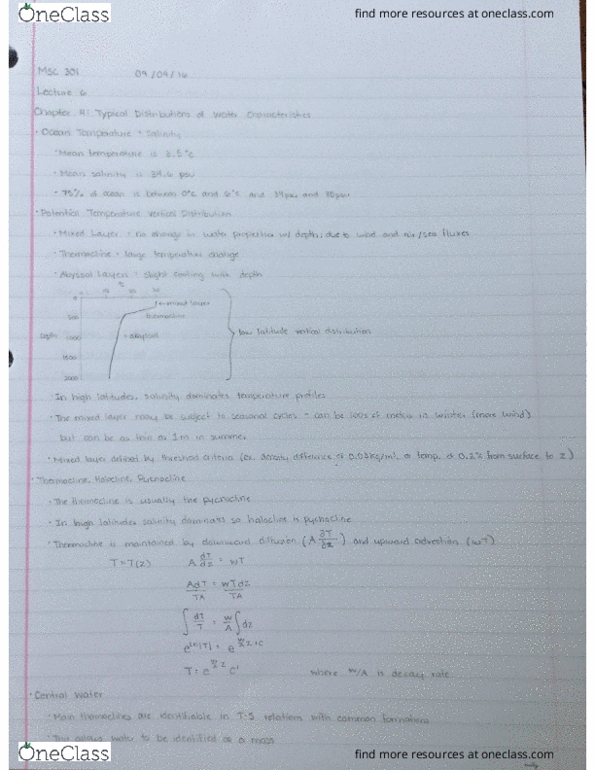 OneClass
find more resources at oneclass.com
MSC 301 09/09/16
Lecture 6
Chapter 4: Typical Distributions of Water Characteristics
· Ocean Temperature + Salinity
· Mean temperature is 3.5°C
· Mean salinity is 34.6 psu
· 75% of ocean is between 0°C and 6°C and 34psu and 35psu
· Potential Temperature Vertical Distribution
· Mixed Layer = no change in water properties w/ depth, due to wind and air/sea fluxes
· Thermocline = large temperature change
· Abyssal Layers = slight cooling with depth
°C
mixed layer
500 thermocline
Depth 1000 abyssal low latitude vertical distribution
1500
2000
· In high latitudes, salinity dominates temperature profiles
· The mixed layer may be subject to seasonal cycles - can be 100s of meters in winter (more wind)
but can be as thin as 1m in summer
· Mixed layer defined by threshold criteria (ex. density difference of 0.03kg/m³, or temp. of 0.2°C from surface to z)
· Thermocline, Halocline, Pycnocline
· The thermocline is usually the pycnocline
· In high latitudes salinity dominates so halocline is pycnocline
· Thermocline is maintained by downward diffusion (A ∂T/∂z) and upward advection (wT)
T=T(z) A dT/dz = wT
AdT/TA = wTdz/TA
∫ dT/T = w/A ∫dz
e^ln|T| = e^(w/A z + c)
T= e^(w/A z) c' where w/A is decay rate
· Central Water
· Main thermoclines are identifiable in T-S relations with common formations
· This allows water to be identified as a mass
OneClass
find more resources at oneclass.com